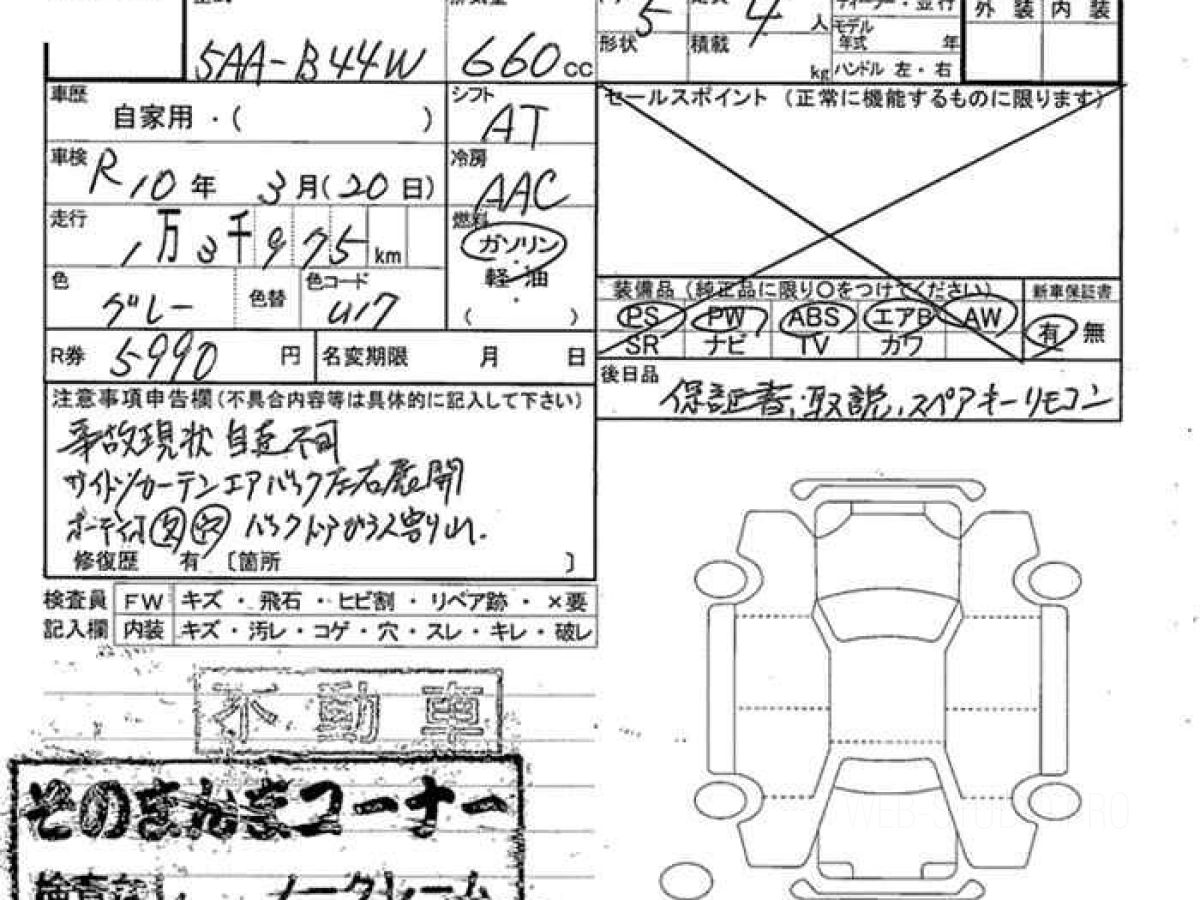 5AA-B44W 660 cc
5 4 人
形状 積載 kg
モデル年式 年
ハンドル 左・右
外装 内装
車歴 自家用・( )
シフト AT
セールスポイント(正常に機能するものに限ります)
車検 R 10年 3月(20日)
冷房 AAC
走行 1万3千975 km
燃料 ガソリン・軽油・( )
色 グレー 色替 色コード U17
装備品(純正品に限り○をつけてください) 新車保証書
PS PW ABS エアB AW 有 無
SR ナビ TV カワ
R券 5990 円 名変期限 月 日
後日品 保証書、取説、スペアキーリモコン
注意事項申告欄(不具合内容等は具体的に記入して下さい)
事故現状 自走不可
サイド カーテンエアバック左右展開
バックドアガラス割り
修復歴 有〔箇所 〕
検査員 FW キズ・飛石・ヒビ割・リペア跡・×要
記入欄 内装 キズ・汚レ・コゲ・穴・スレ・キレ・破レ
不動車
そのまんまコーナー
ノークレーム
WEB-STUDIO.PRO